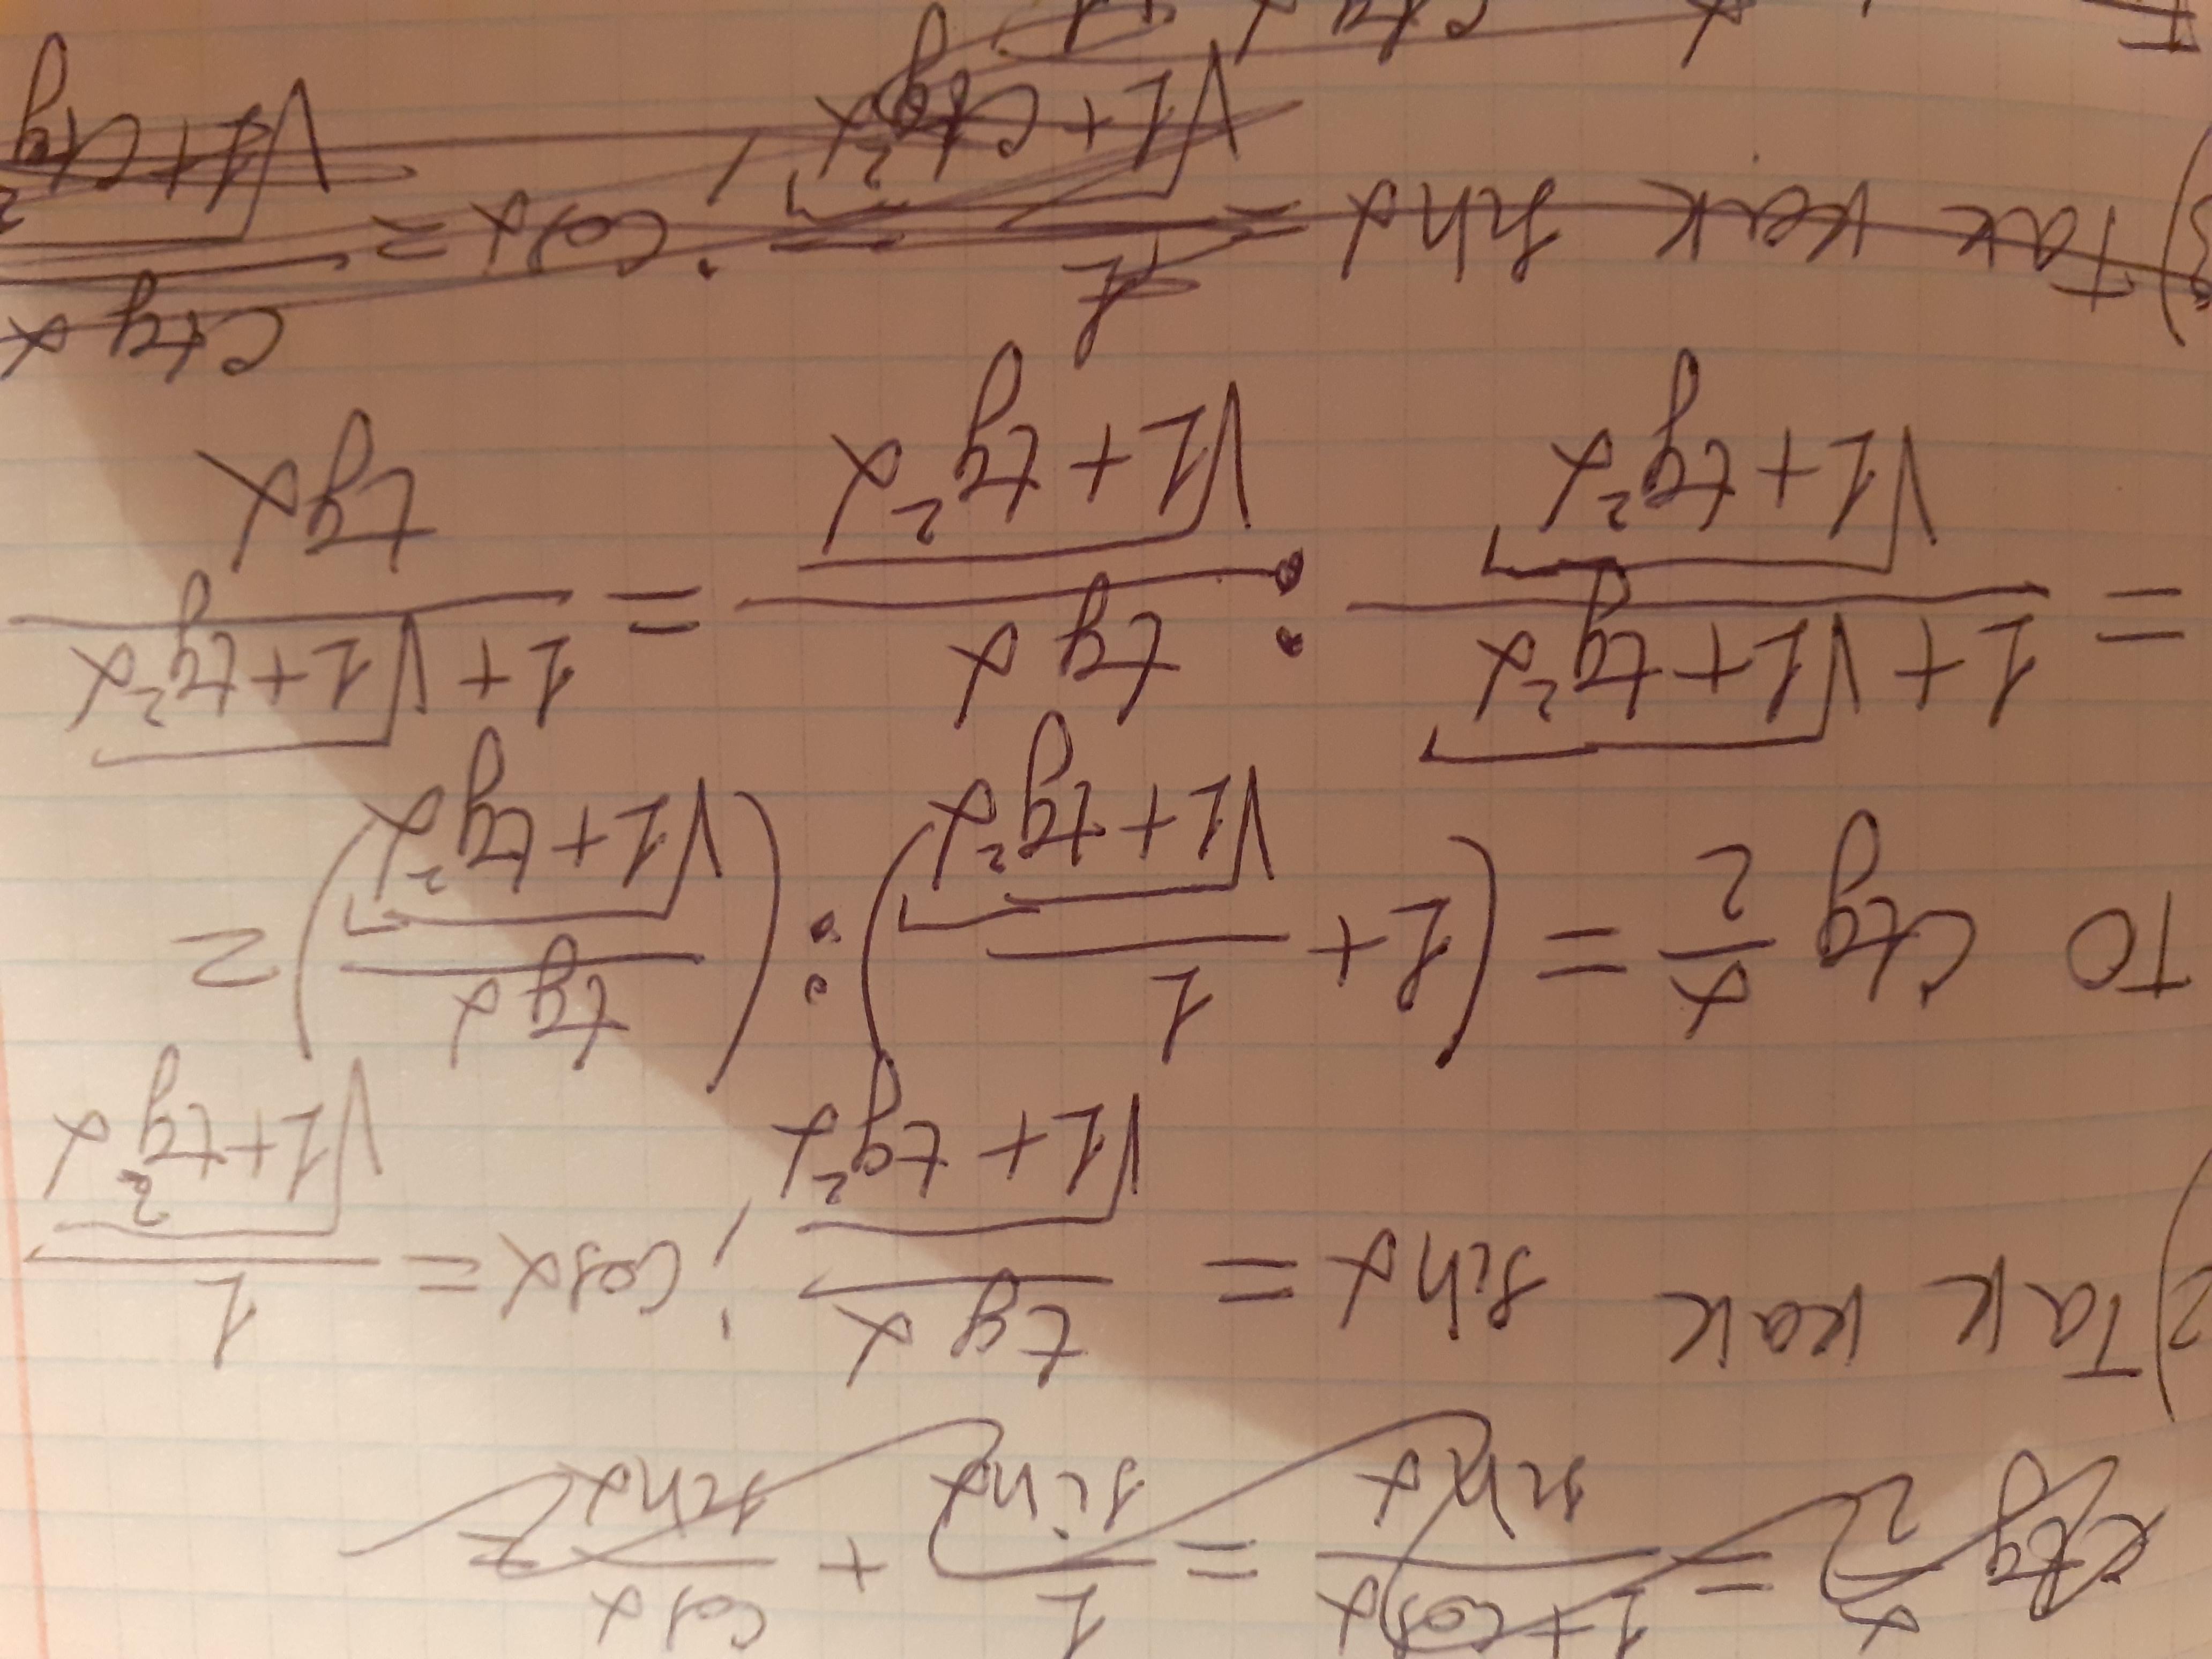 ctg x/2 = (1+cosx)/sinx = 1/sinx + cosx/sinx =
2) Так как sinx = tg x/√(1+tg²x); cosx = 1/√(1+tg²x)
то ctg x/2 = (1+ 1/√(1+tg²x)) : (tg x/√(1+tg²x)) =
= (1+√(1+tg²x))/√(1+tg²x) : tg x/√(1+tg²x) = (1+√(1+tg²x))/tgx
3) Так как sinx = 1/√(1+ctg²x); cosx = ctg x/√(1+ctg²